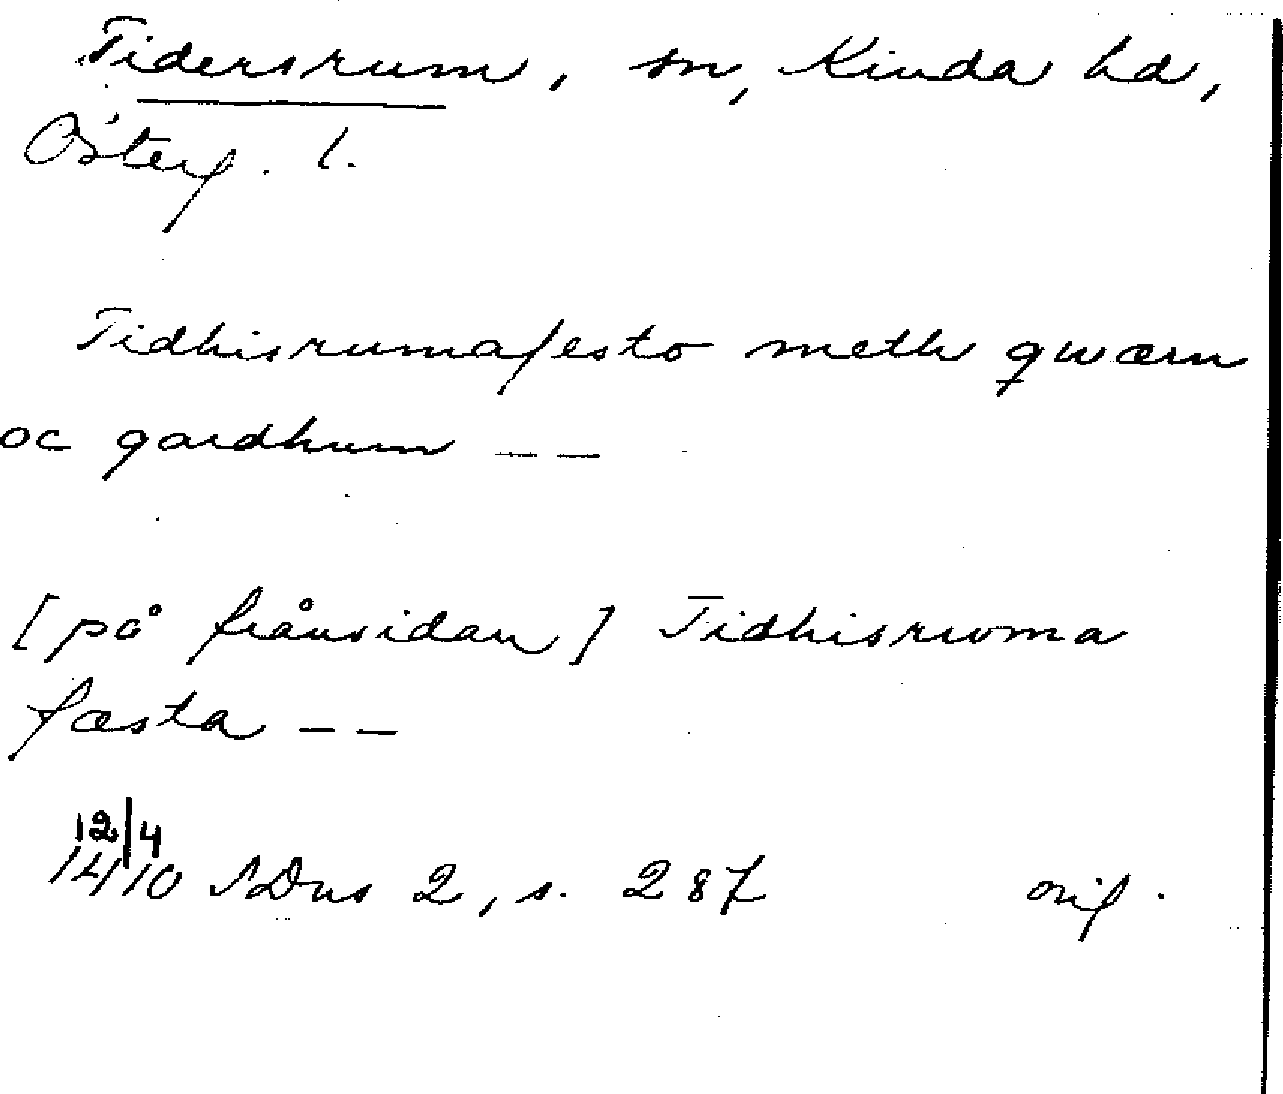 Tidersrum, sn, Kinda hd,
Österg. l.
Tidhisrumafesto meth qwærn
oc gardhum — —
[på frånsidan] Tidhisrwma
fæsta — —
12/4
1410 SDns 2, s. 287 orig.